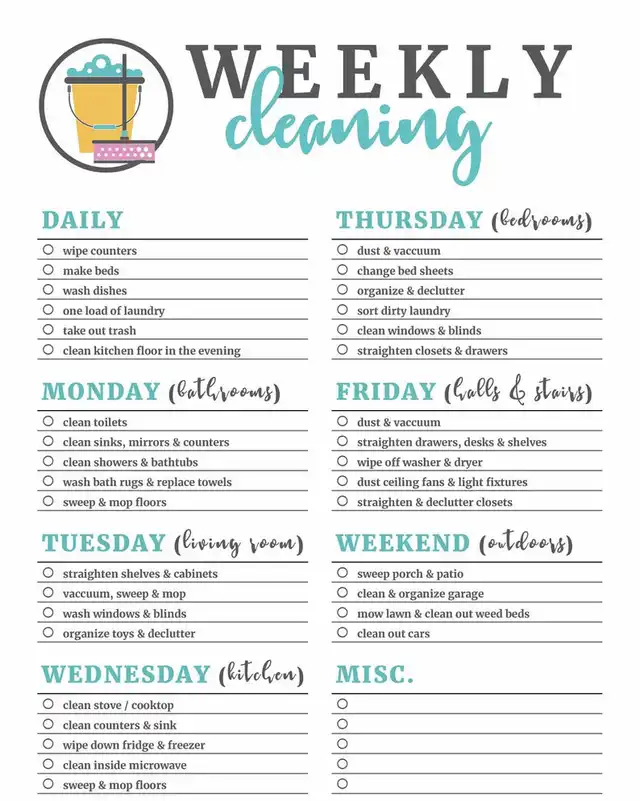 WEEKLY
cleaning
DAILY
wipe counters
make beds
wash dishes
one load of laundry
take out trash
clean kitchen floor in the evening
MONDAY (bathrooms)
clean toilets
clean sinks, mirrors & counters
clean showers & bathtubs
wash bath rugs & replace towels
sweep & mop floors
TUESDAY (living room)
straighten shelves & cabinets
vaccuum, sweep & mop
wash windows & blinds
organize toys & declutter
WEDNESDAY (kitchen)
clean stove / cooktop
clean counters & sink
wipe down fridge & freezer
clean inside microwave
sweep & mop floors
THURSDAY (bedrooms)
dust & vaccuum
change bed sheets
organize & declutter
sort dirty laundry
clean windows & blinds
straighten closets & drawers
FRIDAY (halls & stairs)
dust & vaccuum
straighten drawers, desks & shelves
wipe off washer & dryer
dust ceiling fans & light fixtures
straighten & declutter closets
WEEKEND (outdoors)
sweep porch & patio
clean & organize garage
mow lawn & clean out weed beds
clean out cars
MISC.